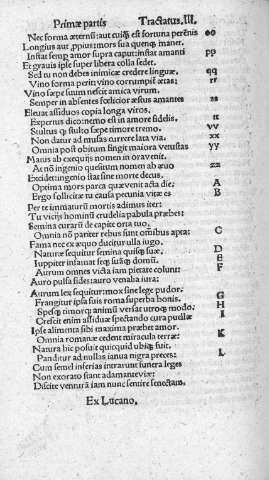 Primæ partis Tractatus.III.
Nec forma æternū: aut cuiq̃ est fortuna perēnis oo
Longius aut ,ppius: mors sua quenq̃ manet.
Instat semp amor supra caput: instat amanti pp
Et grauis ipse super libera colla sedet.
Sed tu non debes inimicæ credere linguæ, qq
Vino forma perit: vino corrumpit ætas: rr
Vino sæpe suum nescit amica virum.
Semper in absentes fœlicior æstus amantes ss
Eleuat assiduos copia longa viros.
Expertus dico: nemo est in amore fidelis. tt
Stultus q stulto sæpe timore tremo. vv
Non datur ad musas currere lata via. xx
Omnia post obitum fingit maiora vetustas yy
Maius ab exequijs nomen in ora venit.
At nō ingenio quesitum nomen ab æuo zz
Excidet: ingenio stat sine morte decus.
Optima mors parca quæ venit acta die: A
Ergo sollicitæ tu causa pecunia vitæ es B
Per te immaturū mortis adimus iter:
Tu vicijs hominū crudelia pabula præbes:
Semina curarū de capite orta tuo.
Omnia nō pariter rebus sunt omnibus apta: C
Fama nec ex æquo ducitur vlla iugo.
Naturæ sequitur semina quisq̃ suæ, D
Iuppiter infamat seq̃ suāq̃ domū. E
Aurum omnes victa iam pietate colunt: F
Auro pulsa fides: auro venalia iura:
Aurum lex sequitur: mox sine lege pudor.
Frangitur ipsa suis roma superba bonis. G
Spesq̃ timorq̃ animū versat utroq̃ modo: H
Crescit enim assiduæ spectando cura puellæ I
Ipse alimenta sibi maxima præbet amor.
Omnia romanæ cedent miracula terræ: K
Natura hic posuit quicquid ubiq̃ fuit.
Panditur ad nullas ianua nigra preces: L
Cum semel infernas intrarunt funera leges
Non exorato stant adamante viæ:
Discite venturā iam nunc sentire senectam.
Ex Lucano.